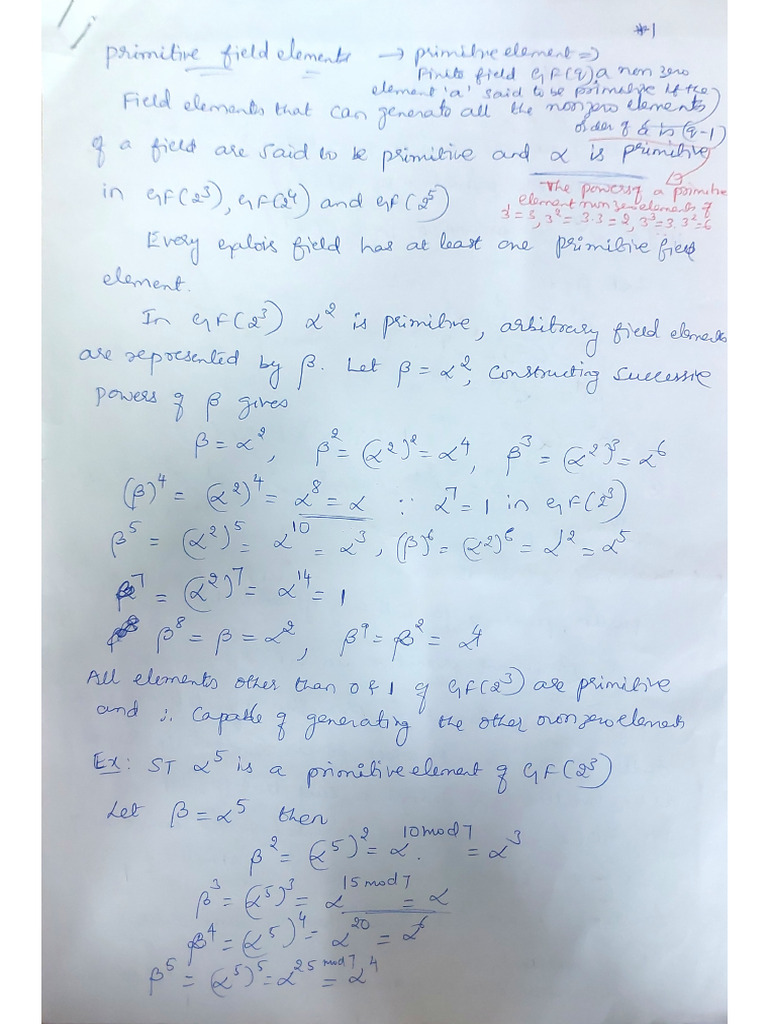 #1
primitive field elements → primitive element ⇒
Finite field GF(q) a non zero
element 'a' said to be primitive if the
order of a is (q-1)
Field elements that can generate all the nonzero elements
of a field are said to be primitive and α is primitive
in GF(2³), GF(2⁴) and GF(2⁵)
The powers of a primitive
element non zero elements of
3 = 3, 3² = 3.3 = 2, 3³ = 3.3² = 6
Every galois field has at least one primitive field
element.
In GF(2³) α² is primitive, arbitrary field elements
are represented by β. Let β = α², constructing successie
powers of β gives
β = α², β² = (α²)² = α⁴, β³ = (α²)³ = α⁶
(β)⁴ = (α²)⁴ = α⁸ = α ∵ α⁷ = 1 in GF(2³)
β⁵ = (α²)⁵ = α¹⁰ = α³, (β)⁶ = (α²)⁶ = α¹² = α⁵
β⁷ = (α²)⁷ = α¹⁴ = 1
β⁸ = β = α², β⁹ = β² = α⁴
All elements other than 0 & 1 of GF(2³) are primitive
and ∴ capable of generating the other nonzero elements
Ex: ST α⁵ is a primitive element of GF(2³)
Let β = α⁵ then
β² = (α⁵)² = α^10 mod 7 . = α³
β³ = (α⁵)³ = α^15 mod 7 = α
β⁴ = (α⁵)⁴ = α²⁰ = α⁶
β⁵ = (α⁵)⁵ = α^25 mod 7 = α⁴